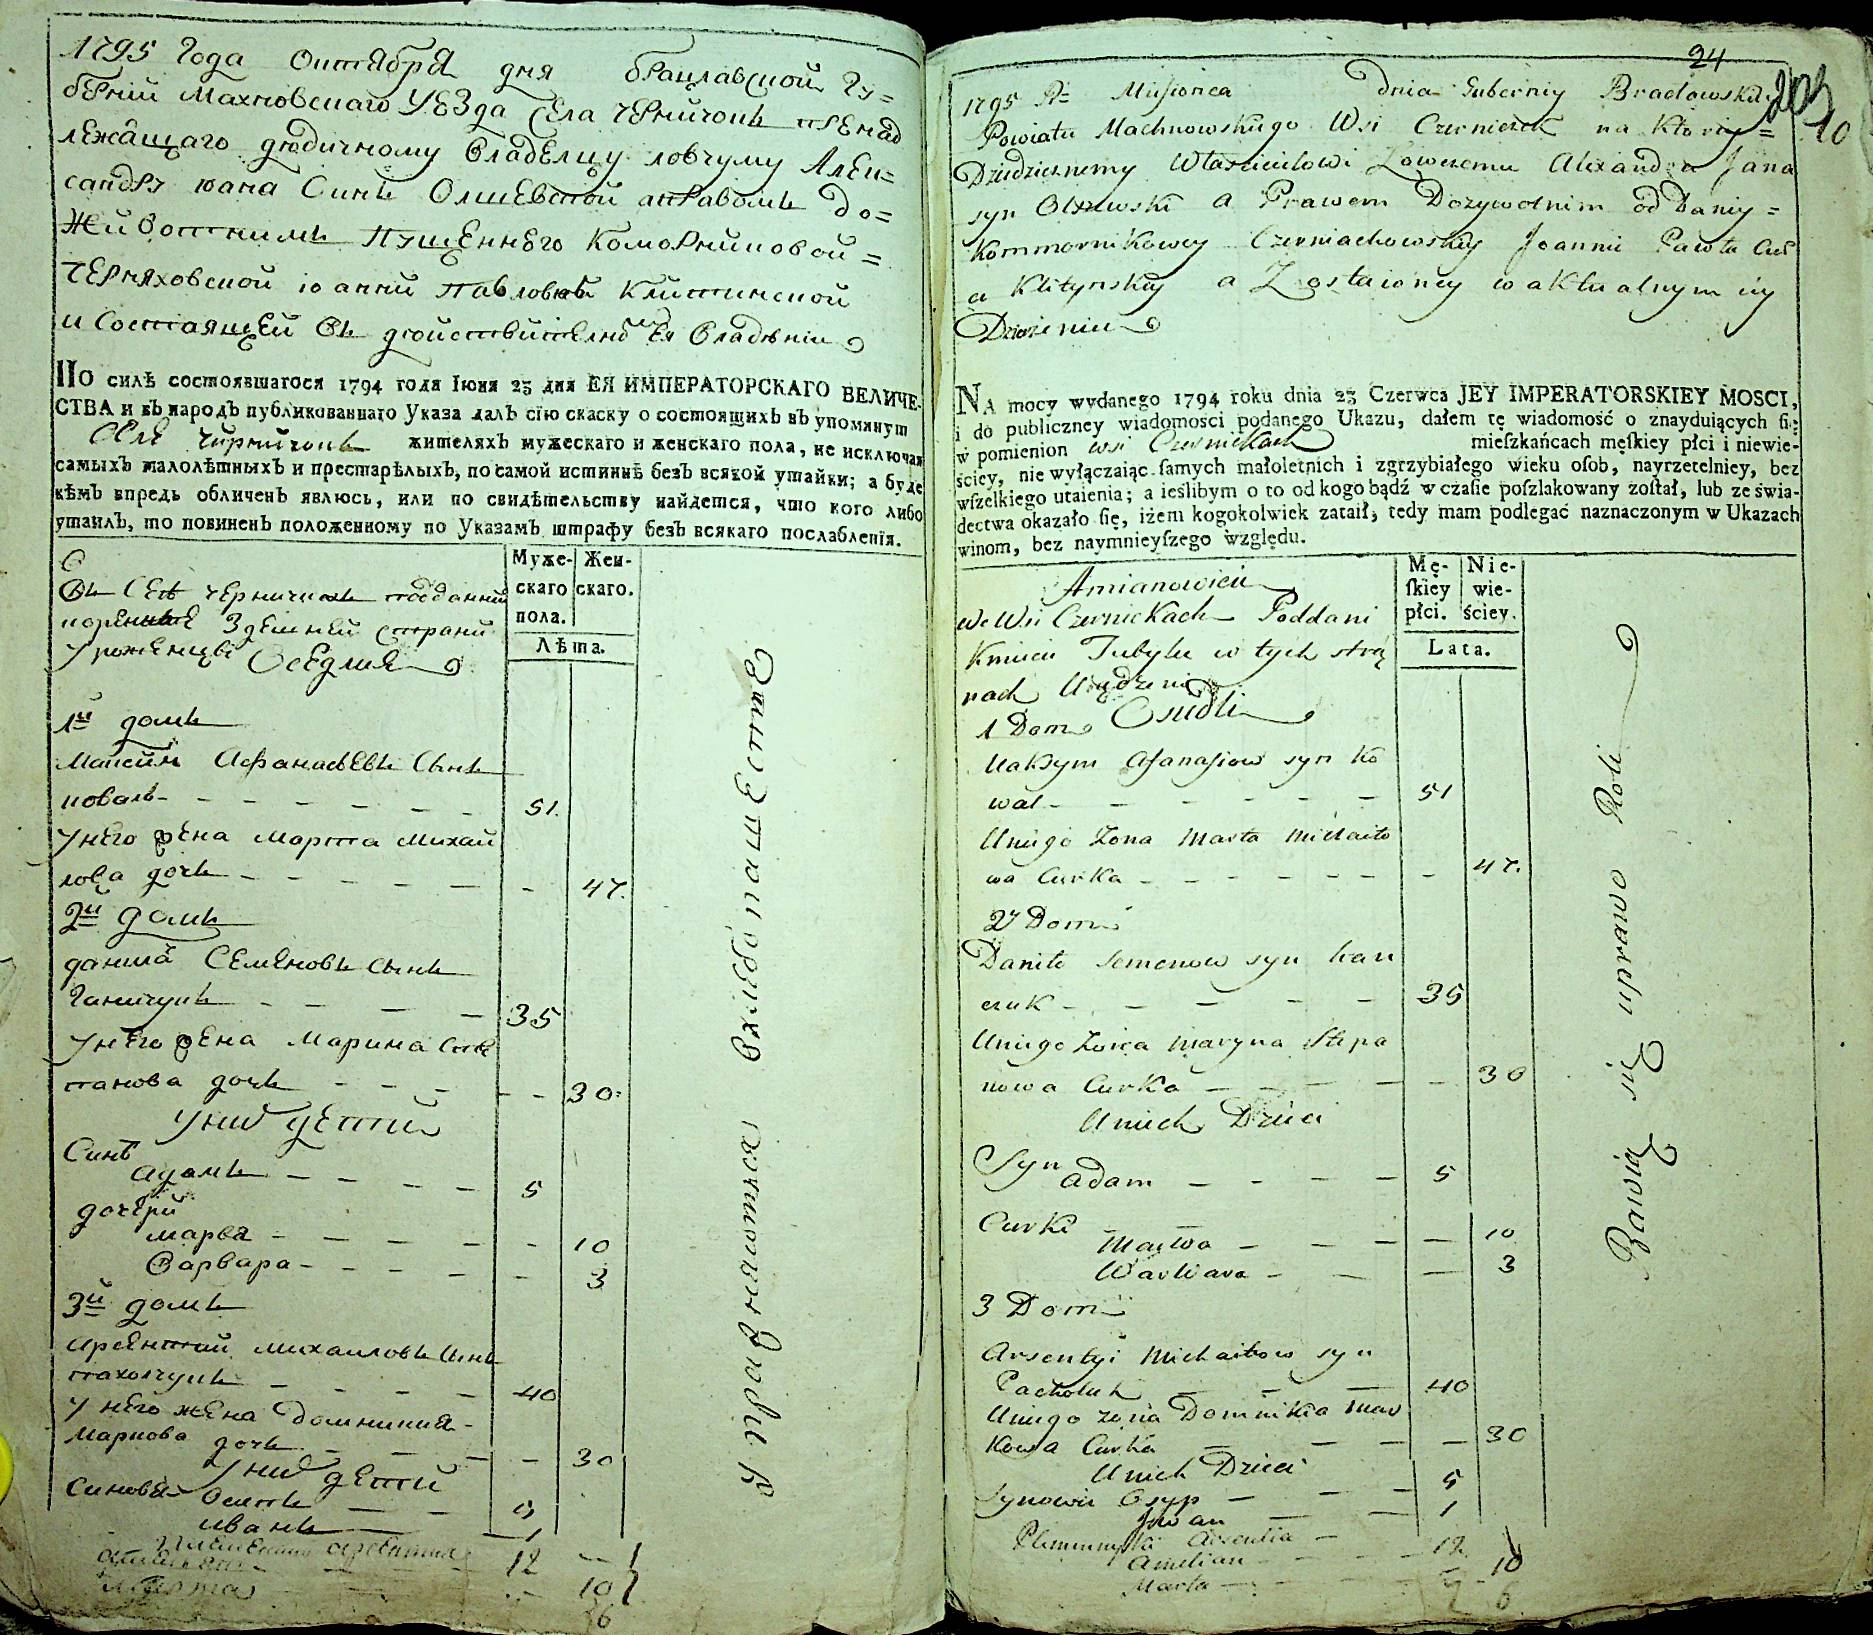 1795 Года Октября дня Брацлавской Гу=
бернiи Махновскаго Уезда Села Черничокъ пренад
лежащаго дедичному Владелцу ловчуму Алек=
сандру Iвана Синъ Олшевской а правомъ до=
Животнимъ пущенного коморниковой=
Черняховской Iоанни Павловой Клитинской
и Состоящей въ действителномъ Ея Владѣнiи
ПО силѣ состоявшагося 1794 годя Iюня 23 дня ЕЯ ИМПЕРАТОРСКАГО ВЕЛИЧЕ-
СТВА и въ народъ публикованнаго Указа далъ сiю скаску о состоящихъ въ упомянут
Селе Черничокъ жителяхъ мужескаго и женскаго пола, не исключая
самыхъ малолѣтныхъ и престарѣлыхъ, по самой истиннѣ безъ всякой утайки; а буде
кѣмъ впредь обличенъ явлюсь, или по свидѣтельству найдется, что кого либо
утаилъ, то повиненъ положенному по Указамъ штрафу безъ всякаго послабленiя.
Муже-
скаго
пола.
Жен-
скаго.
Лѣта.
Въ Селѣ Черничкахъ подданий
здешней страни
уроженци Оседлие
1й домъ
Максим Афанасьевъ Синъ
коваль - - - - - - 51.
У него жена Марта Михай
лова дочь - - - - - - 47.
2й домъ
данила Семеновъ синъ
Ганчукъ - - - - 35
У него жена Марина Сте
панова дочь - - - - - 30.
У них дети
Синъ
адамъ - - - - - 5
дочери
марва - - - - - 10
Варвара - - - - - 3
3й домъ
арсентий михаиловъ синъ
пахолчукъ - - - - - 40
У него жена Домникия
Маркова дочь - - - - 30
У них дети
Синовья Осипъ - - - 5
иванъ - - 1
арсентия
12
марта 10
6
Упражняються в хлѣбопашестве
24
203
10
1795 Rº Miesionca dnia Guberniy Braclawskiey
Powiatu Machnowskiego Wsi Czerniczek na ktorey=
Dziedzicznemy Wlascicielowi Lowczemu Alexandra Jana
syn Olszewski a Prawem Dozywotnim od Daniy=
kommornikowey Czerniachowskiey Joannie Pawla
a Klityńskiey a Zostaioncey w aktualnym iey
Dzierżeniu
NA mocy wydanego 1794 roku dnia 23 Czerwca JEY IMPERATORSKIEY MOSCI,
i do publiczney wiadomości podanego Ukazu, dałem tę wiadomość o znayduiących ſię
w pomienion wsi Czernickach mieſzkańcach męſkiey płci i niewie-
ściey, nie wyłączaiąc ſamych małoletnich i zgrzybiałego wieku oſob, nayrzetelniey, bez
wſzelkiego utaienia; a ieślibym o to od kogo bądź w czaſie poſzlakowany zoſtał, lub ze świa-
dectwa okazało ſię, iżem kogokolwiek zataił, tedy mam podlegać naznaczonym w Ukazach
winom, bez naymnieyſzego względu.
Mę-
ſkiey
płci.
Nie-
wie-
ściey.
Lata.
Amianowicie
We Wsi Czernickach Poddani
Kmiecie Tubylce w tych stro
nach Urodzeni
Osiedli
1 Dom
Maksym Afanasiow syn Ko
wal - - - - - - 51
U niego Zona Marta Michaiło
wa Curka - - - - - - 47.
2y Dom
Daniło Semenow syn han
czuk - - - - - 35
U niego Zona Maryna Stepa
nowa Curka - - - - - 30
U nich Dzieci
Syn
Adam - - - - 5
Curki
Marwa - - - - 10
Warwara - - - 3
3 Dom
Arsentyi Michaiłow syn
Pacholuk - - - 40
U niego zona Domnikia Mar
kowa Curka - - - - 30
U nich Dzieci
Synowie Osyp - - - 5
Jwan - - 1
Plemmnyki Arsentia -
Amilian - - - - 12
Marta - - - - - 10
7 6
Bawią się uprawo Roli